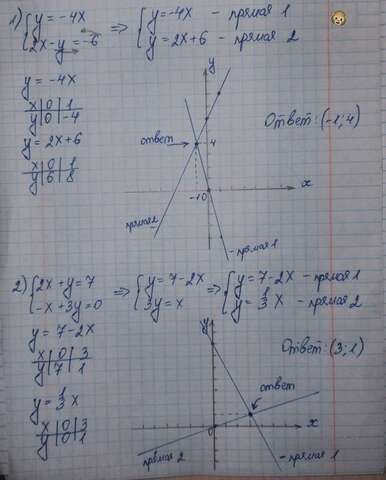 1) { y = -4x => { y = -4x - прямая 1
2x - y = -6 { y = 2x + 6 - прямая 2
y = -4x
x | 0 | 1
y | 0 | -4
y = 2x + 6
x | 0 | 1
y | 6 | 8
y
ответ
4
-1 0
x
прямая 2
- прямая 1
Ответ: (-1; 4)
2) { 2x + y = 7 => { y = 7 - 2x => { y = 7 - 2x - прямая 1
-x + 3y = 0 { 3y = x { y = 1/3 x - прямая 2
y = 7 - 2x
x | 0 | 3
y | 7 | 1
y = 1/3 x
x | 0 | 3
y | 0 | 1
y
Ответ: (3; 1)
ответ
0
x
прямая 2
- прямая 1